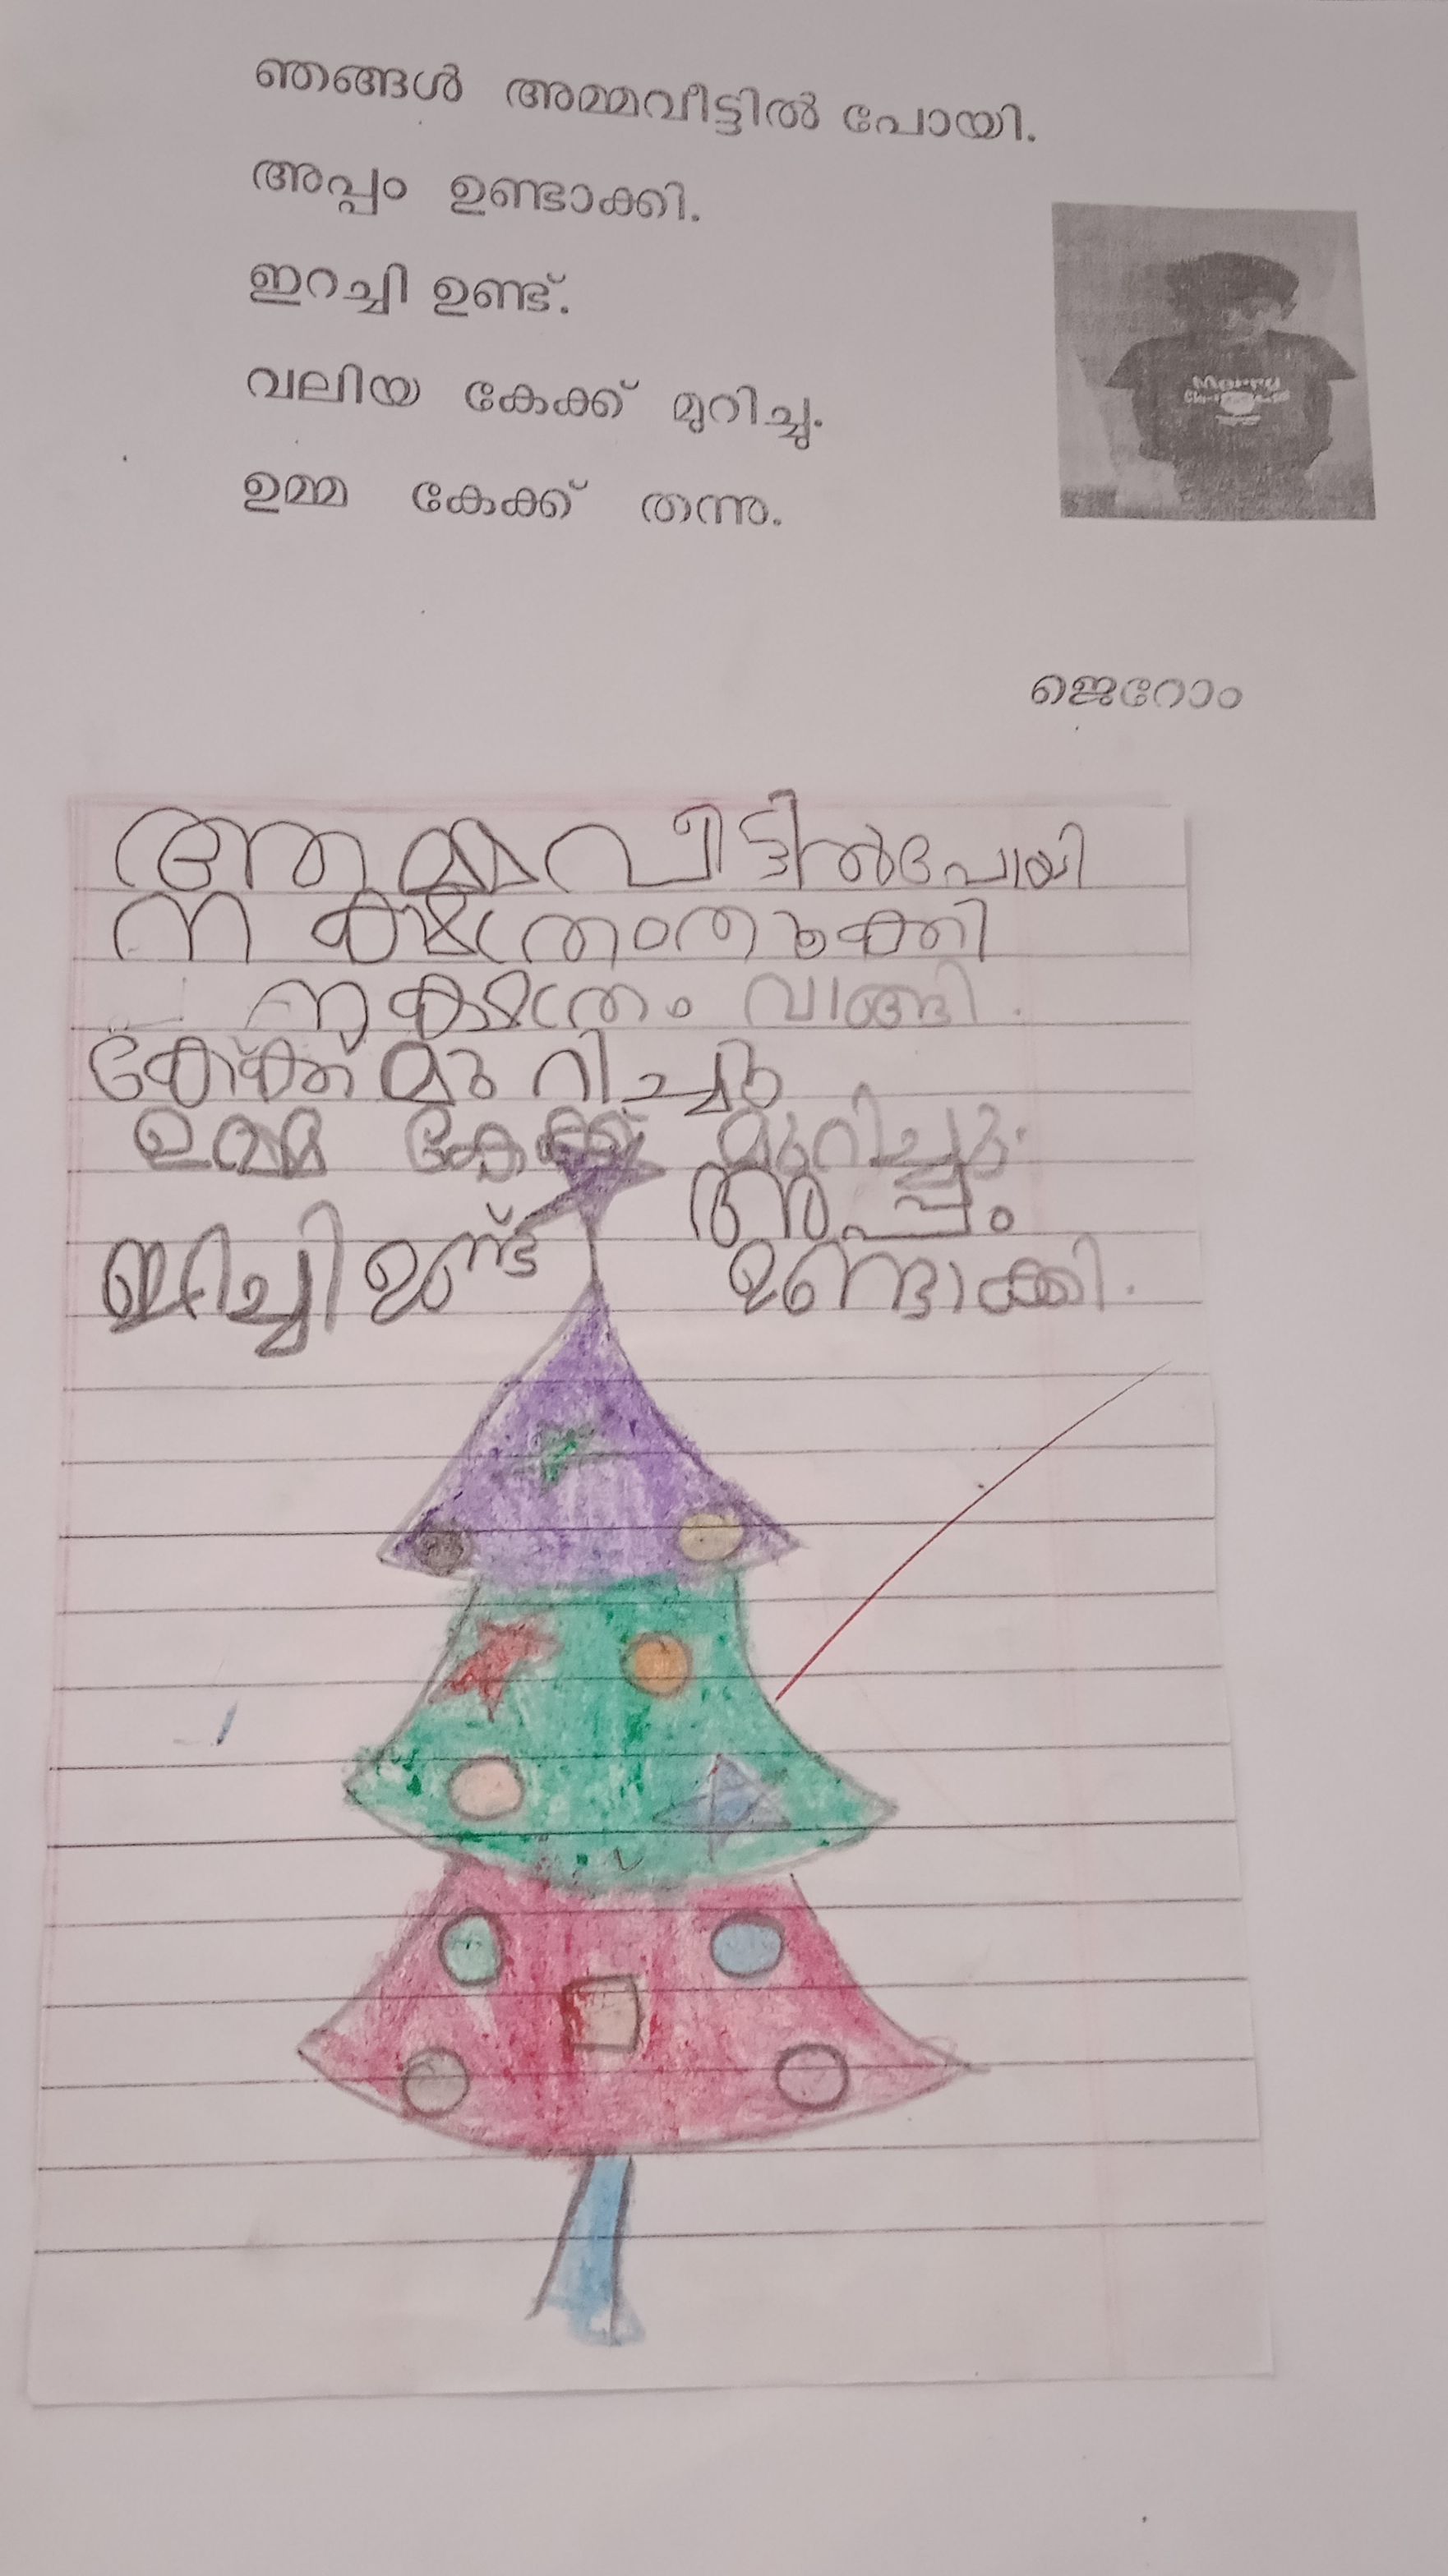 ഞങ്ങൾ അമ്മവീട്ടിൽ പോയി.
അപ്പം ഉണ്ടാക്കി.
ഇറച്ചി ഉണ്ട്.
വലിയ കേക്ക് മുറിച്ചു.
ഉമ്മ കേക്ക് തന്നു.
Merry
ജെറോം
അമ്മവീട്ടിൽപോയി
നക്ഷത്രംതൂക്കി
നക്ഷത്രം വാങ്ങി.
കേക്ക് മുറിച്ചു
ഉമ്മ കേക്ക് മുറിച്ചു.
അപ്പം
ഇറച്ചി ഉണ്ട്
ഉണ്ടാക്കി.